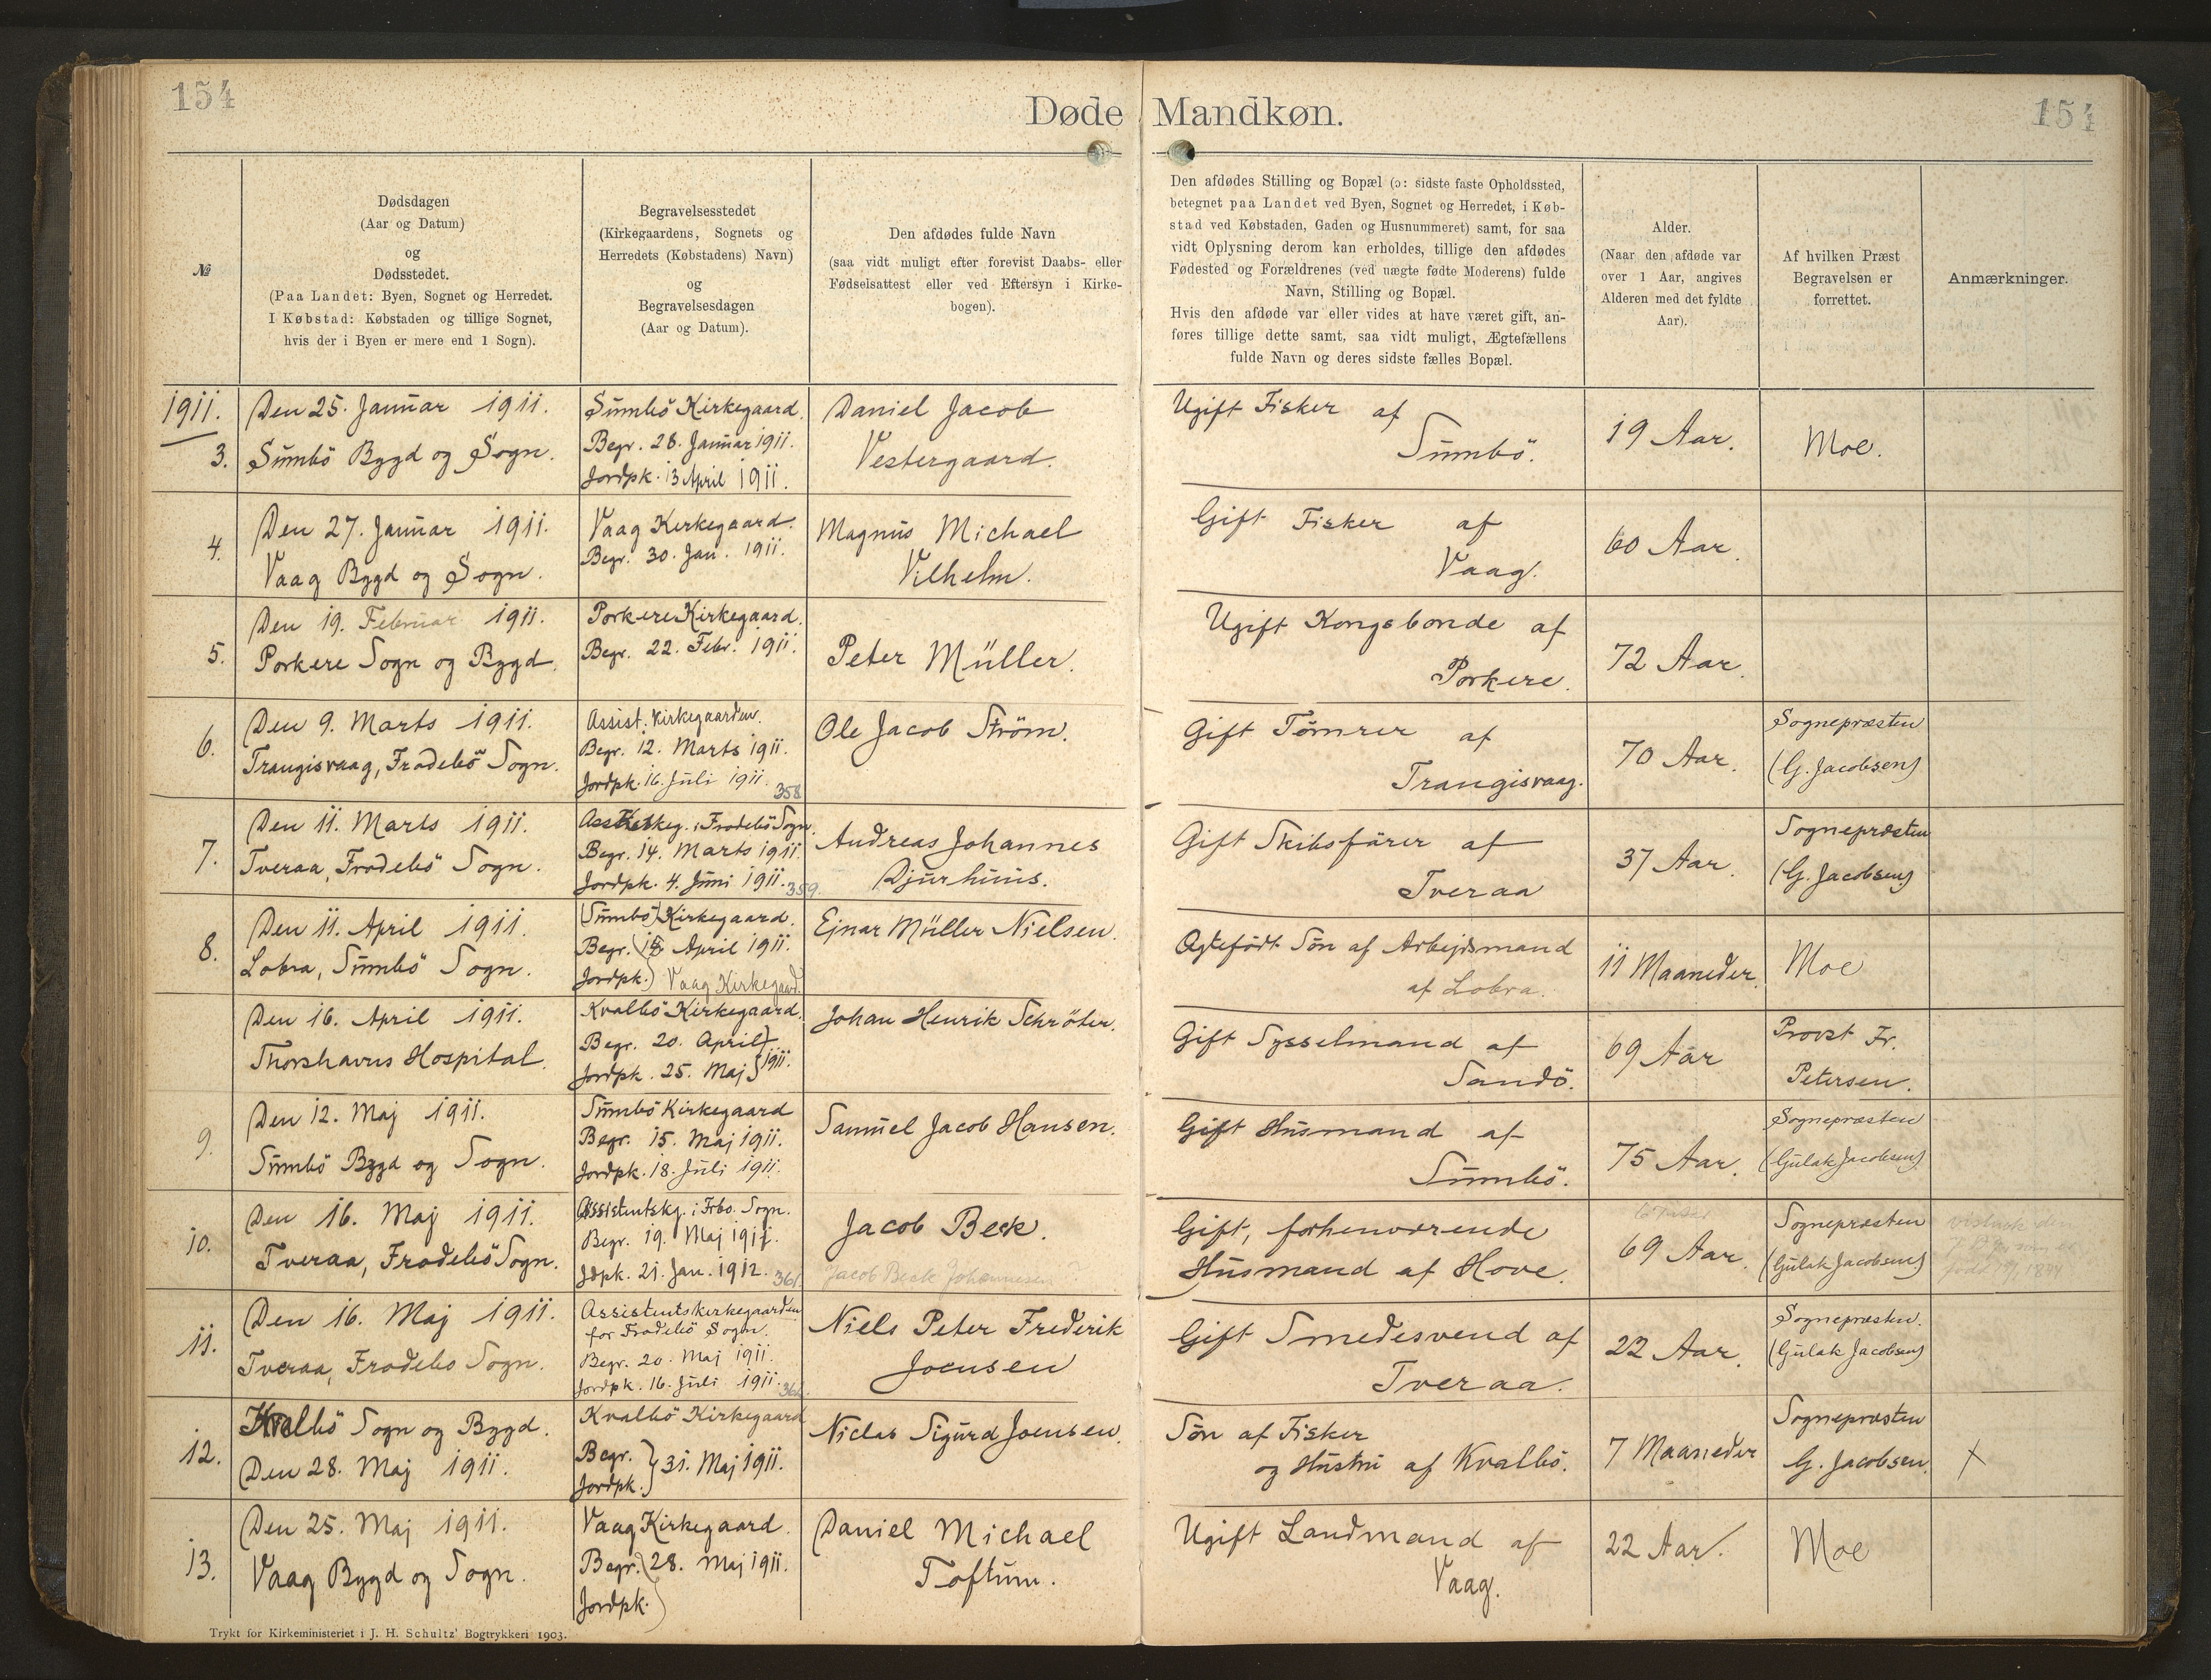 154
Døde Mandkøn.
154
№
Dødsdagen
(Aar og Datum)
og
Dødsstedet.
(Paa Landet: Byen, Sognet og Herredet.
I Købstad: Købstaden og tillige Sognet,
hvis der i Byen er mere end 1 Sogn).
Begravelsesstedet
(Kirkegaardens, Sognets og
Herredets (Købstadens) Navn)
og
Begravelsesdagen
(Aar og Datum).
Den afdødes fulde Navn
(saa vidt muligt efter forevist Daabs- eller
Fødselsattest eller ved Eftersyn i Kirke-
bogen).
Den afdødes Stilling og Bopæl (ɔ: sidste faste Opholdssted,
betegnet paa Landet ved Byen, Sognet og Herredet, i Køb-
stad ved Købstaden, Gaden og Husnummeret) samt, for saa
vidt Oplysning derom kan erholdes, tillige den afdødes
Fødested og Forældrenes (ved uægte fødte Moderens) fulde
Navn, Stilling og Bopæl.
Hvis den afdøde var eller vides at have været gift, an-
føres tillige dette samt, saa vidt muligt, Ægtefællens
fulde Navn og deres sidste fælles Bopæl.
Alder.
(Naar den afdøde var
over 1 Aar, angives
Alderen med det fyldte
Aar).
Af hvilken Præst
Begravelsen er
forrettet.
Anmærkninger.
1911.
3.
Den 25. Januar 1911.
Sumbö Bygd og Sogn.
Sumbö Kirkegaard.
Begr. 28. Januar 1911.
Jordpk. 13 April 1911.
Daniel Jacob
Vestergaard.
Ugift Fisker af
Sumbö.
19 Aar.
Moe.
4.
Den 27. Januar 1911.
Vaag Bygd og Sogn.
Vaag Kirkegaard.
Begr. 30. Jan. 1911.
Magnus Michael
Vilhelm.
Gift Fisker af
Vaag.
60 Aar.
5.
Den 19. Februar 1911.
Porkere Sogn og Bygd.
Porkere Kirkegaard.
Begr. 22. Febr. 1911.
Peter Müller.
Ugift Kongsbonde af
Porkere.
72 Aar.
6.
Den 9. Marts 1911.
Trangisvaag, Frodebö Sogn.
Assist. Kirkegaarden.
Begr. 12. Marts 1911.
Jordpk. 16. Juli 1911.
358
Ole Jacob Ström.
Gift Tömrer af
Trangisvaag.
70 Aar.
Sognepræsten
(G. Jacobsen)
7.
Den 11. Marts 1911.
Tveraa, Frodebö Sogn.
Ass. Kirkeg. i Frodebö Sogn.
Begr. 14. Marts 1911.
Jordpk. 4. Juni 1911.
359.
Andreas Johannes
Djurhuus.
Gift Skibsförer af
Tveraa
37 Aar.
Sognepræsten
(G. Jacobsen)
8.
Den 11. April 1911.
Lobra, Sumbö Sogn.
(Sumbö) Kirkegaard.
Begr. April 1911.
Jordpk. Vaag Kirkegaard.
Ejnar Müller Nielsen.
Ægtefödt Sön af Arbejdsmand
af Lobra.
11 Maaneder.
Moe
Den 16. April 1911.
Thorshavns Hospital.
Kvalbö Kirkegaard.
Begr. 20. April
Jordpk. 25. Maj } 1911.
Johan Henrik Schröter.
Gift Sysselmand af
Sandö.
69 Aar
Provst Fr.
Petersen.
9.
Den 12. Maj 1911.
Sumbö Bygd og Sogn.
Sumbö Kirkegaard
Begr. 15. Maj 1911.
Jordpk. 18. Juli 1911.
Samuel Jacob Hansen.
Gift Husmand af
Sumbö.
75 Aar.
Sognepræsten
(Gulak Jacobsen)
10.
Den 16. Maj 1911.
Tveraa, Frodebö Sogn.
Assistentskg. i Frbo. Sogn.
Begr. 19. Maj 1911.
Jdpk. 21. Jan. 1912.
361
Jacob Beck.
Jacob Beck Johannesen ?
Gift, forhenværende
Husmand af Hove.
69 Aar.
Sognepræsten
(Gulak Jacobsen)
11.
Den 16. Maj 1911.
Tveraa, Frodebo Sogn.
Assistentskirkegaarden
for Frodebö Sogn.
Begr. 20. Maj 1911.
Jordpk. 16. Juli 1911.
Niels Peter Frederik
Joensen
Gift Smedesvend af
Tveraa.
22 Aar.
Sognepræsten.
(Gulak Jacobsen)
12.
Kvalbö Sogn og Bygd.
Den 28. Maj 1911.
Kvalbö Kirkegaard
Begr.
Jordpk. } 31. Maj 1911.
Niclas Sigurd Joensen.
Sön af Fisker
og Hustru af Kvalbö.
7 Maaneder
Sognepræsten
G. Jacobsen.
X
13.
Den 25. Maj 1911.
Vaag Bygd og Sogn.
Vaag Kirkegaard.
Begr. 28. Maj 1911.
Jordpk.
Daniel Michael
Toftum.
Ugift Landmand af
Vaag.
22 Aar.
Moe
Trykt for Kirkeministeriet i J. H. Schultz' Bogtrykkeri 1903.